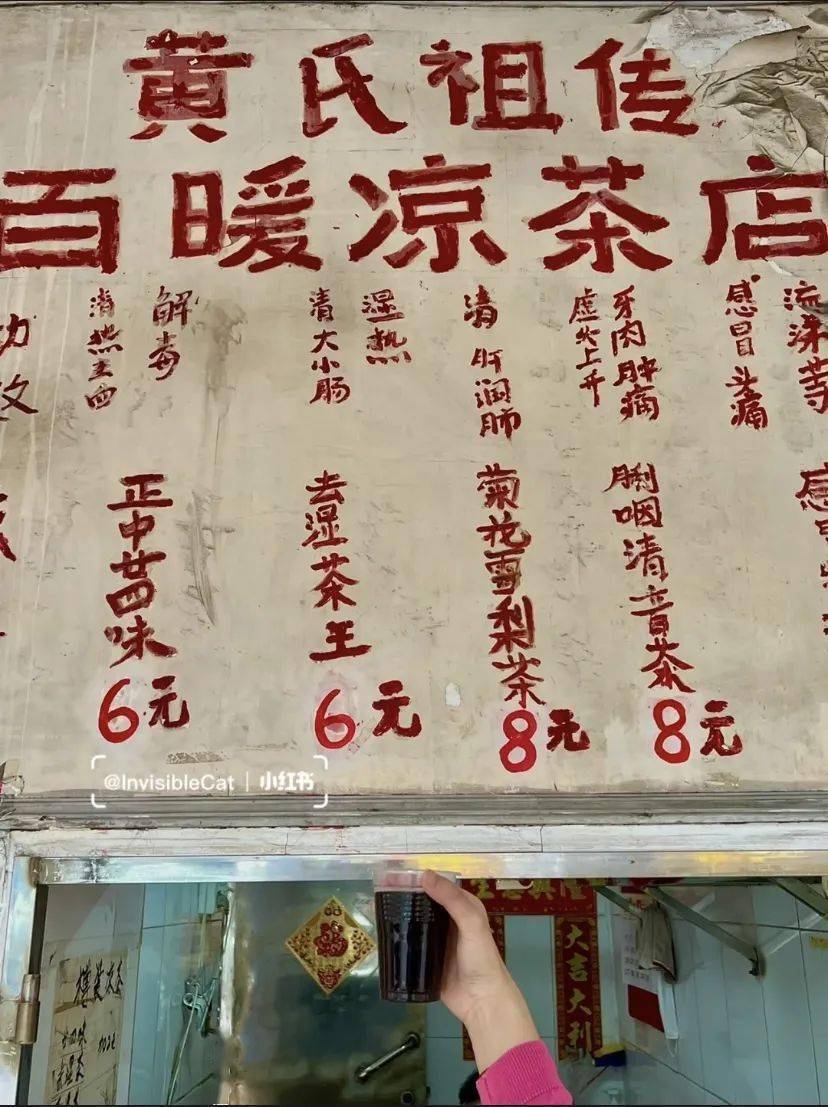 黄氏祖传
百暖凉茶店
功效
解毒
清热
湿热
清大小肠
清肝润肺
牙肉肿痛
虚火上升
流涕等
感冒头痛
正中廿四味
6元
去湿茶王
6元
菊花雪梨茶
8元
喉咽清音茶
8元
感冒
@InvisibleCat | 小红书
大吉大利